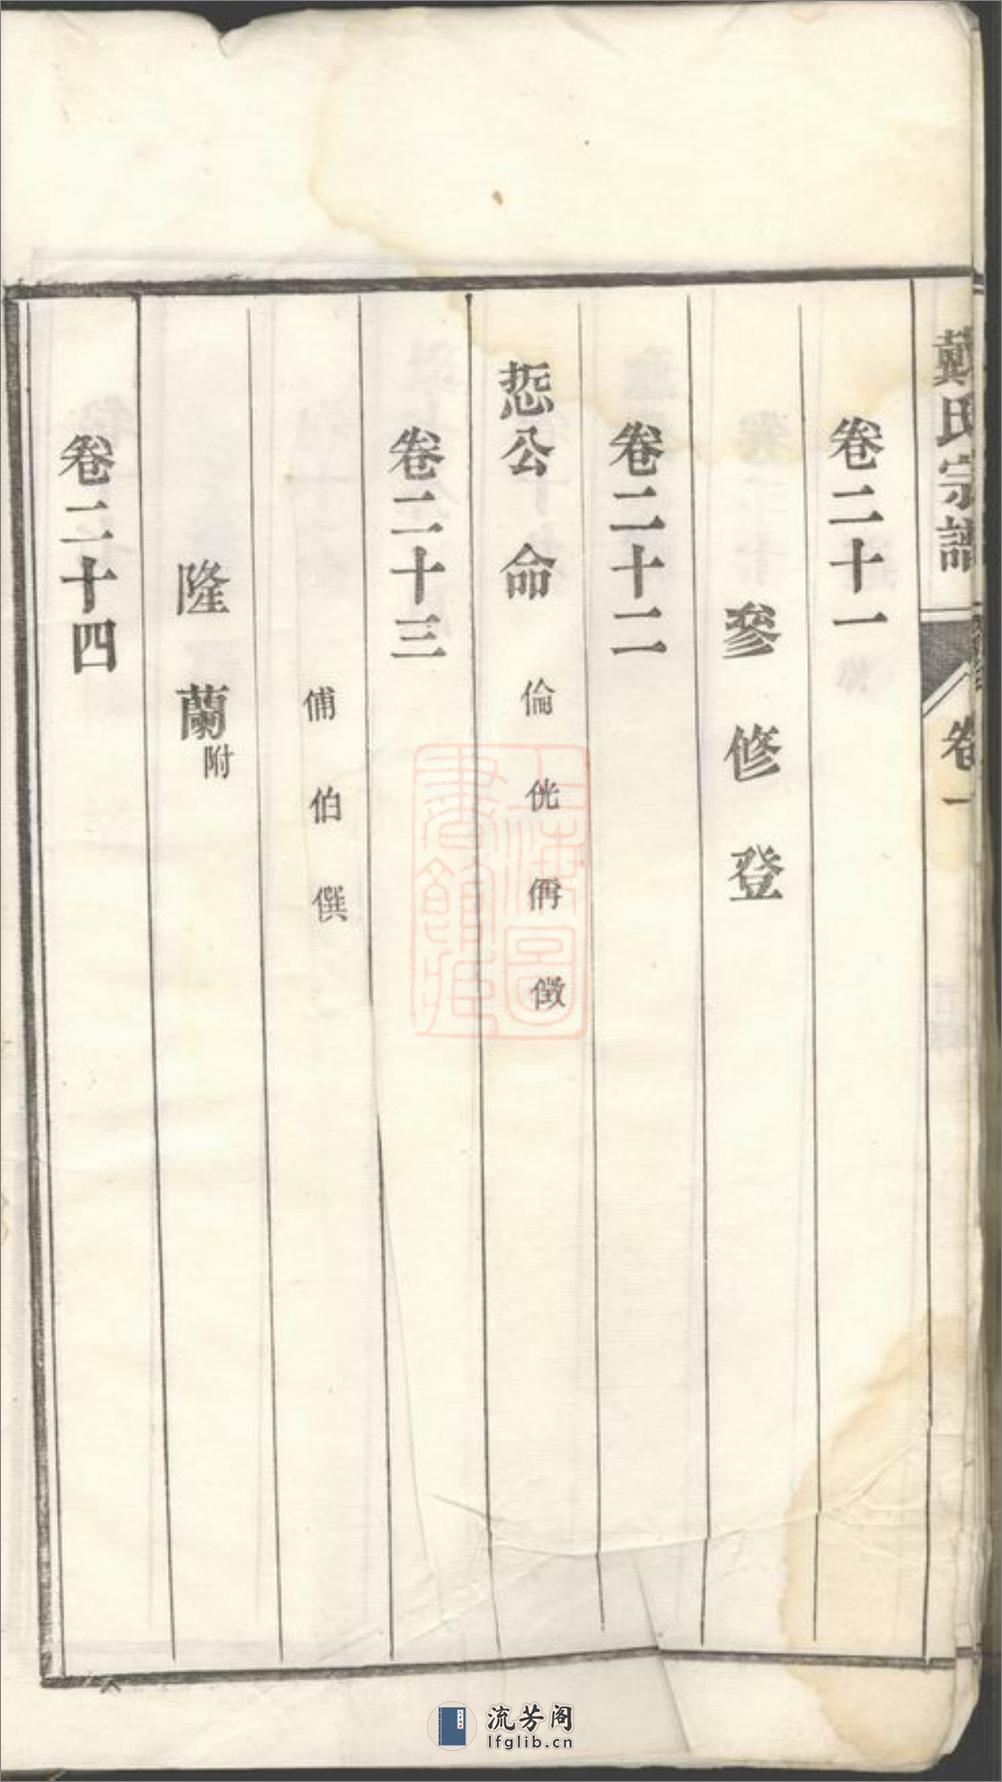 戴氏宗譜
卷一
卷二十一
參修登
卷二十二
惁公命
倫侊偁徵
卷二十三
俌伯僎
隆蘭附
卷二十四
上海圖書館藏
流芳阁
lfglib.cn